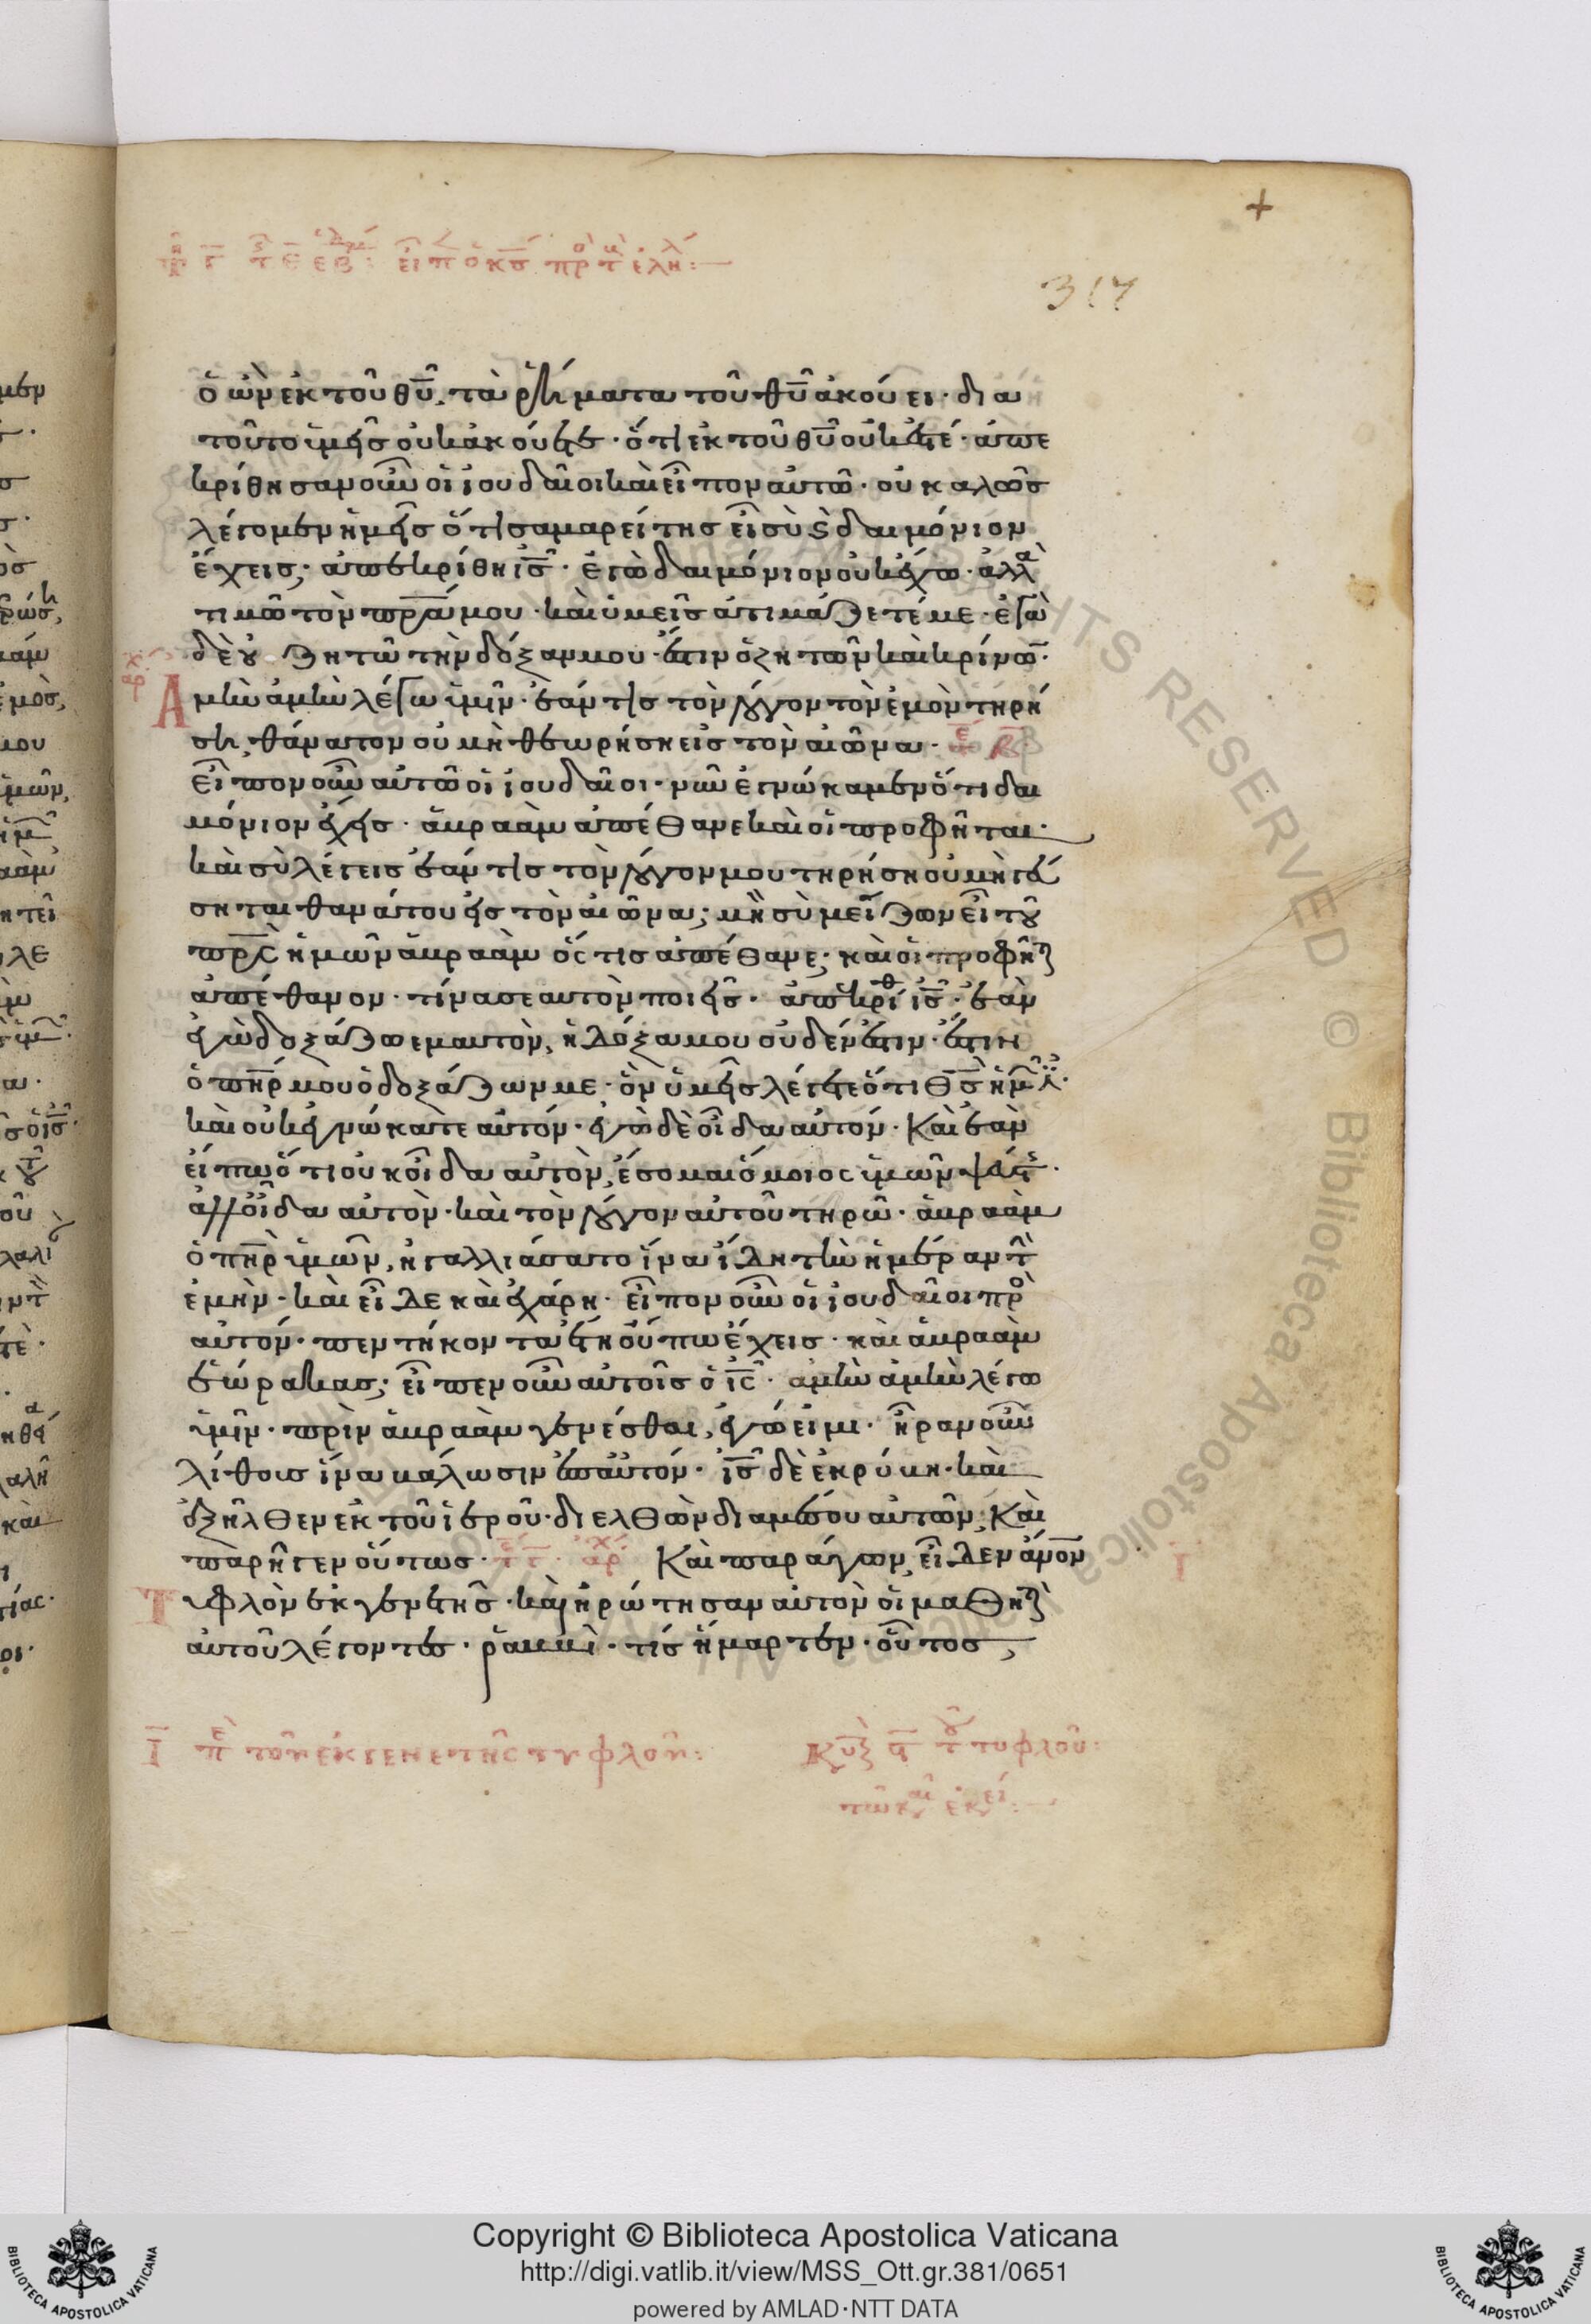 +
317
ὁ ὢν ἐκ τοῦ θ̅υ̅, τὰ ῥήματα τοῦ θ̅υ̅ ἀκούει· δια
τοῦτο ὑμεῖς οὐκ ἀκούετε· ὅτι ἐκ τοῦ θ̅υ̅ οὐκ ἐστέ· ἀπε
κρίθησαν οὖν οἱ ἰουδαῖοι καὶ εἶπον αὐτῶ· οὐ καλῶς
λέγομεν ἡμεῖς ὅτι σαμαρείτης εἶ σὺ ϗ δαιμόνιον
ἔχεις; ἀπεκρίθη ι̅ς̅· ἐγὼ δαιμόνιον οὐκ ἔχω· ἀλλὰ
τιμῶ τὸν π̅ρ̅α̅ μου· καὶ ὑμεῖς ἀτιμάζετέ με· ἐγὼ
δὲ οὐ ζητῶ τὴν δόξαν μου· ἔστιν ὁ ζητῶν καὶ κρίνων·
Ἀμὴν ἀμὴν λέγω ὑμῖν· ἐάν τις τὸν λόγον τὸν ἐμὸν τηρή
ση, θάνατον οὐ μὴ θεωρήση εἰς τὸν αἰῶνα·
εἶπον οὖν αὐτῶ οἱ ἰουδαῖοι· νῦν ἐγνώκαμεν ὅτι δαι
μόνιον ἔχεις· ἀβραὰμ ἀπέθανε καὶ οἱ προφῆται·
καὶ σὺ λέγεις ἐάν τις τὸν λόγον μου τηρήση οὐ μὴ γεύ
σηται θανάτου εἰς τὸν αἰῶνα; μὴ σὺ μείζων εἶ τοῦ
π̅ρ̅ς̅ ἡμῶν ἀβραὰμ ὅς τις ἀπέθανε; καὶ οἱ προφῆται
ἀπέθανον· τίνα σεαυτὸν ποιεῖς· ἀπεκρίθ ι̅ς̅· ἐὰν
ἐγὼ δοξάζω εμαυτὸν, ἡ δόξα μου οὐδέν ἐστιν· ἔστιν
ὁ π̅η̅ρ̅ μου ὁ δοξάζων με· ὃν ὑμεῖς λέγετε ὅτι θ̅ς̅ ἡμῶν ἐστι·
καὶ οὐκ ἐγνώκατε αὐτόν· ἐγὼ δὲ οἶδα αὐτόν· Καὶ ἐὰν
εἴπω ὅτι οὐκ οἶδα αὐτὸν, ἔσομαι ὅμοιος ὑμῶν ψεύστης·
ἀλλ οἶδα αὐτὸν· καὶ τὸν λόγον αὐτοῦ τηρῶ· ἀβραὰμ
ὁ π̅η̅ρ̅ ὑμῶν, ἠγαλλιάσατο ἵνα ἴδη τὴν ἡμέραν τὴν
ἐμὴν· καὶ εἶδε καὶ ἐχάρη· εἶπον οὖν οἱ ἰουδαῖοι πρὸς
αὐτόν· πεντήκοντα ἔτη οὔπω ἔχεις· καὶ ἀβραὰμ
ἑώρακας; εἶπεν οὖν αὐτοῖς ὁ ι̅ς̅· ἀμὴν ἀμὴν λέγω
ὑμῖν· πρὶν ἀβραὰμ γενέσθαι, ἐγώ εἰμι· ἦραν οὖν
λίθους ἵνα βάλωσιν ἐπ αὐτόν· ι̅ς̅ δὲ ἐκρύβη· καὶ
ἐξῆλθεν ἐκ τοῦ ἱεροῦ· διελθὼν δια μέσου αὐτῶν, Καὶ
παρῆγεν οὕτως· Καὶ παράγων, εἶδεν α̅ν̅ο̅ν̅
Τυφλὸν ἐκ γενετῆς· καὶ ἠρώτησαν αὐτὸν οἱ μαθηταὶ
αὐτοῦ λέγοντες· ῥαββὶ· τίς ἥμαρτεν· οὗτος,
ι̅ πε τοῦ ἐκ γενετῆς τυφλοῦ:
Κυ α τοῦ τυφλοῦ:
ALL RIGHTS RESERVED © Biblioteca Apostolica
Copyright © Biblioteca Apostolica Vaticana
http://digi.vatlib.it/view/MSS_Ott.gr.381/0651
powered by AMLAD·NTT DATA
BIBLIOTECA APOSTOLICA VATICANA
BIBLIOTECA APOSTOLICA VATICANA